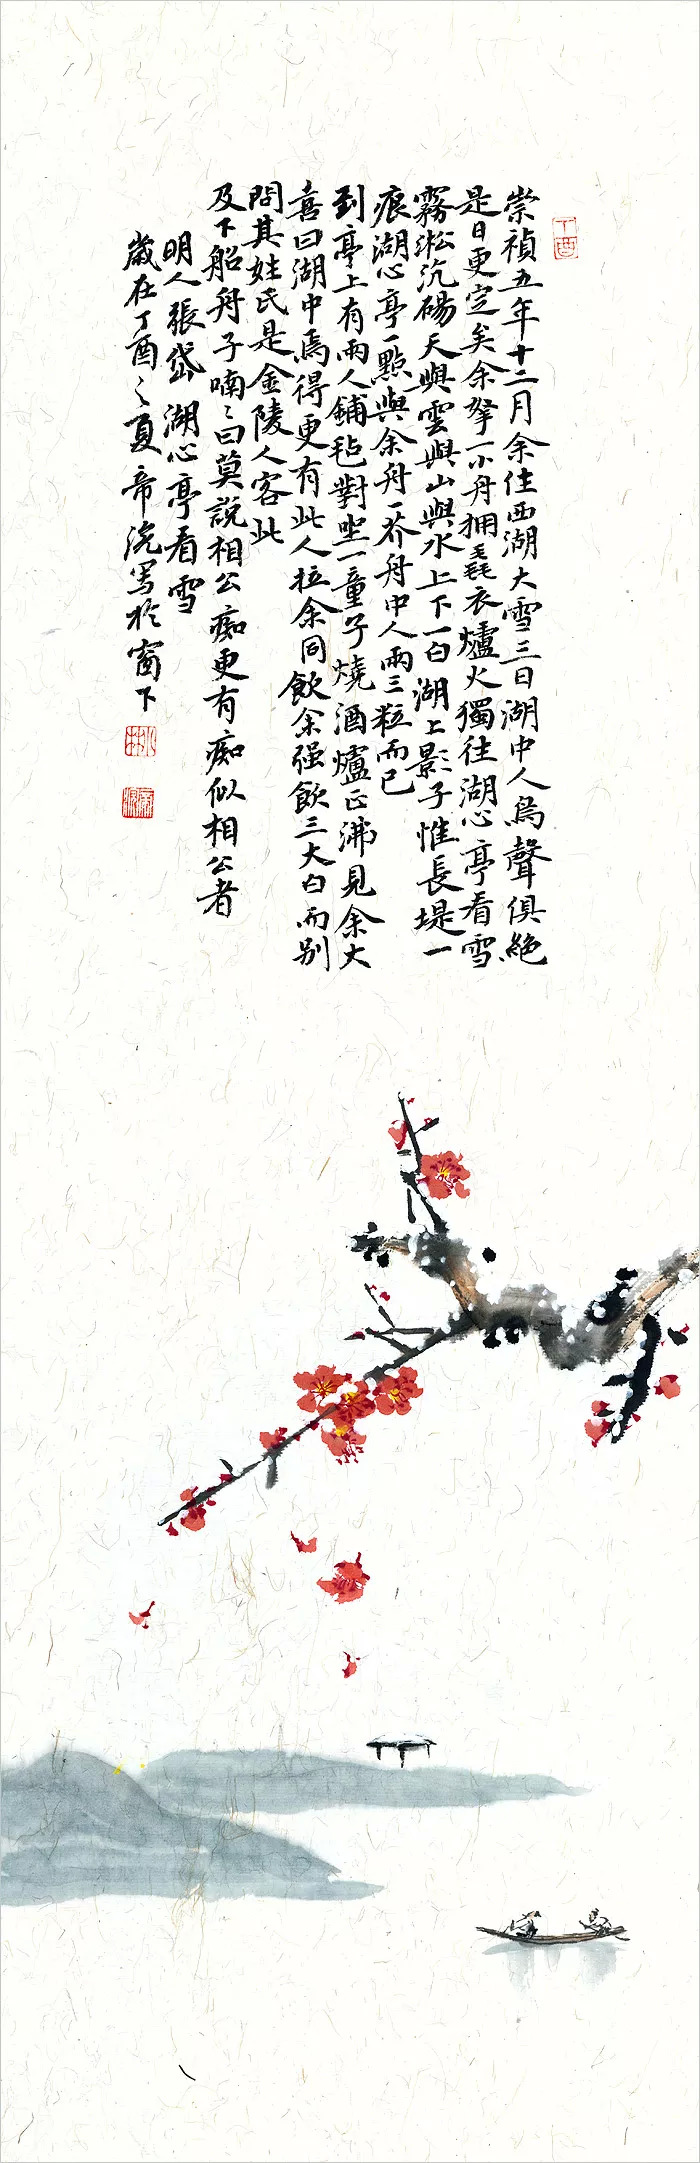 丁酉
崇禎五年十二月余住西湖大雪三日湖中人鳥聲俱絶
是日更定矣余拏一小舟擁毳衣爐火獨往湖心亭看雪
霧淞沆碭天與雲與山與水上下一白湖上影子惟長堤一
痕湖心亭一點與余舟一芥舟中人兩三粒而已
到亭上有兩人鋪毡對坐一童子燒酒爐正沸見余大
喜曰湖中焉得更有此人拉余同飲余强飲三大白而别
問其姓氏是金陵人客此
及下船舟子喃〻曰莫說相公痴更有痴似相公者
明人張岱 湖心亭看雪
歲在丁酉之夏帝浣写於窗下